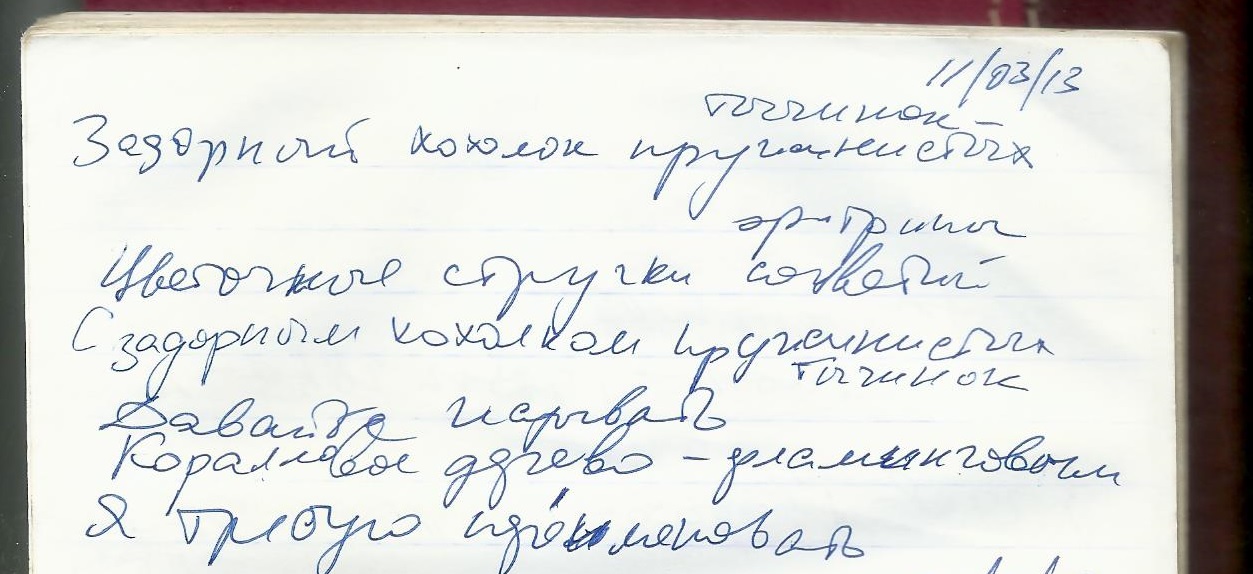 11/03/13
тычинок –
Задорный хохолок пружинистых
эритрины
Цветочные стручки соцветий
С задорным хохолком пружинистых
тычинок
Давайте
Коралловое дерево – фламинговым
Я требую переименовать